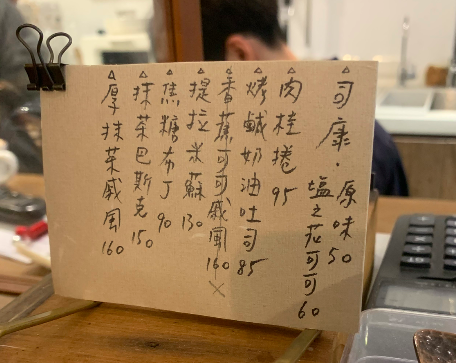 △司康·原味50
塩之花可可60
△肉桂捲95
△烤鹹奶油吐司85
△香蕉可可戚風160×
△提拉米蘇130
△焦糖布丁90
△抹茶巴斯克150
△厚抹茶戚風160